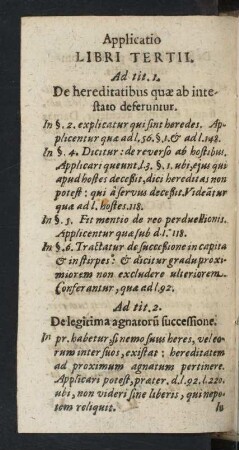 Applicatio
LIBRI TERTII.
Ad tit. 1.
De hereditatibus quæ ab inte-
stato deferuntur.
In §. 2. explicatur qui sint heredes. Ap-
plicentur quæ ad l. 56. §. 1. & ad l. 148.
In §. 4. Dicitur: de reverso ab hostibus.
Applicari queunt l. 3. §. 1. ubi, ejus qui
apud hostes decessit, dici hereditas non
potest: qui à servus decessit. Videātur
quæ ad l. hostes. 118.
In §. 5. Fit mentio de reo perduellionis.
Applicentur quæ sub d. l. 118.
In §. 6. Tractatur de successione in capita
& in stirpes: & dicitur gradu proxi-
miorem non excludere ulteriorem.
Conferantur, quæ ad l. 92.
Ad tit. 2.
De legitima agnatorū successione.
In pr. habetur, si nemo suus heres, vel eo-
rum inter suos, existat: hereditatem
ad proximum agnatum pertinere.
Applicari potest, præter. d. l. 92. l. 220.
ubi, non videri sine liberis, qui nepo-
tem reliquit.